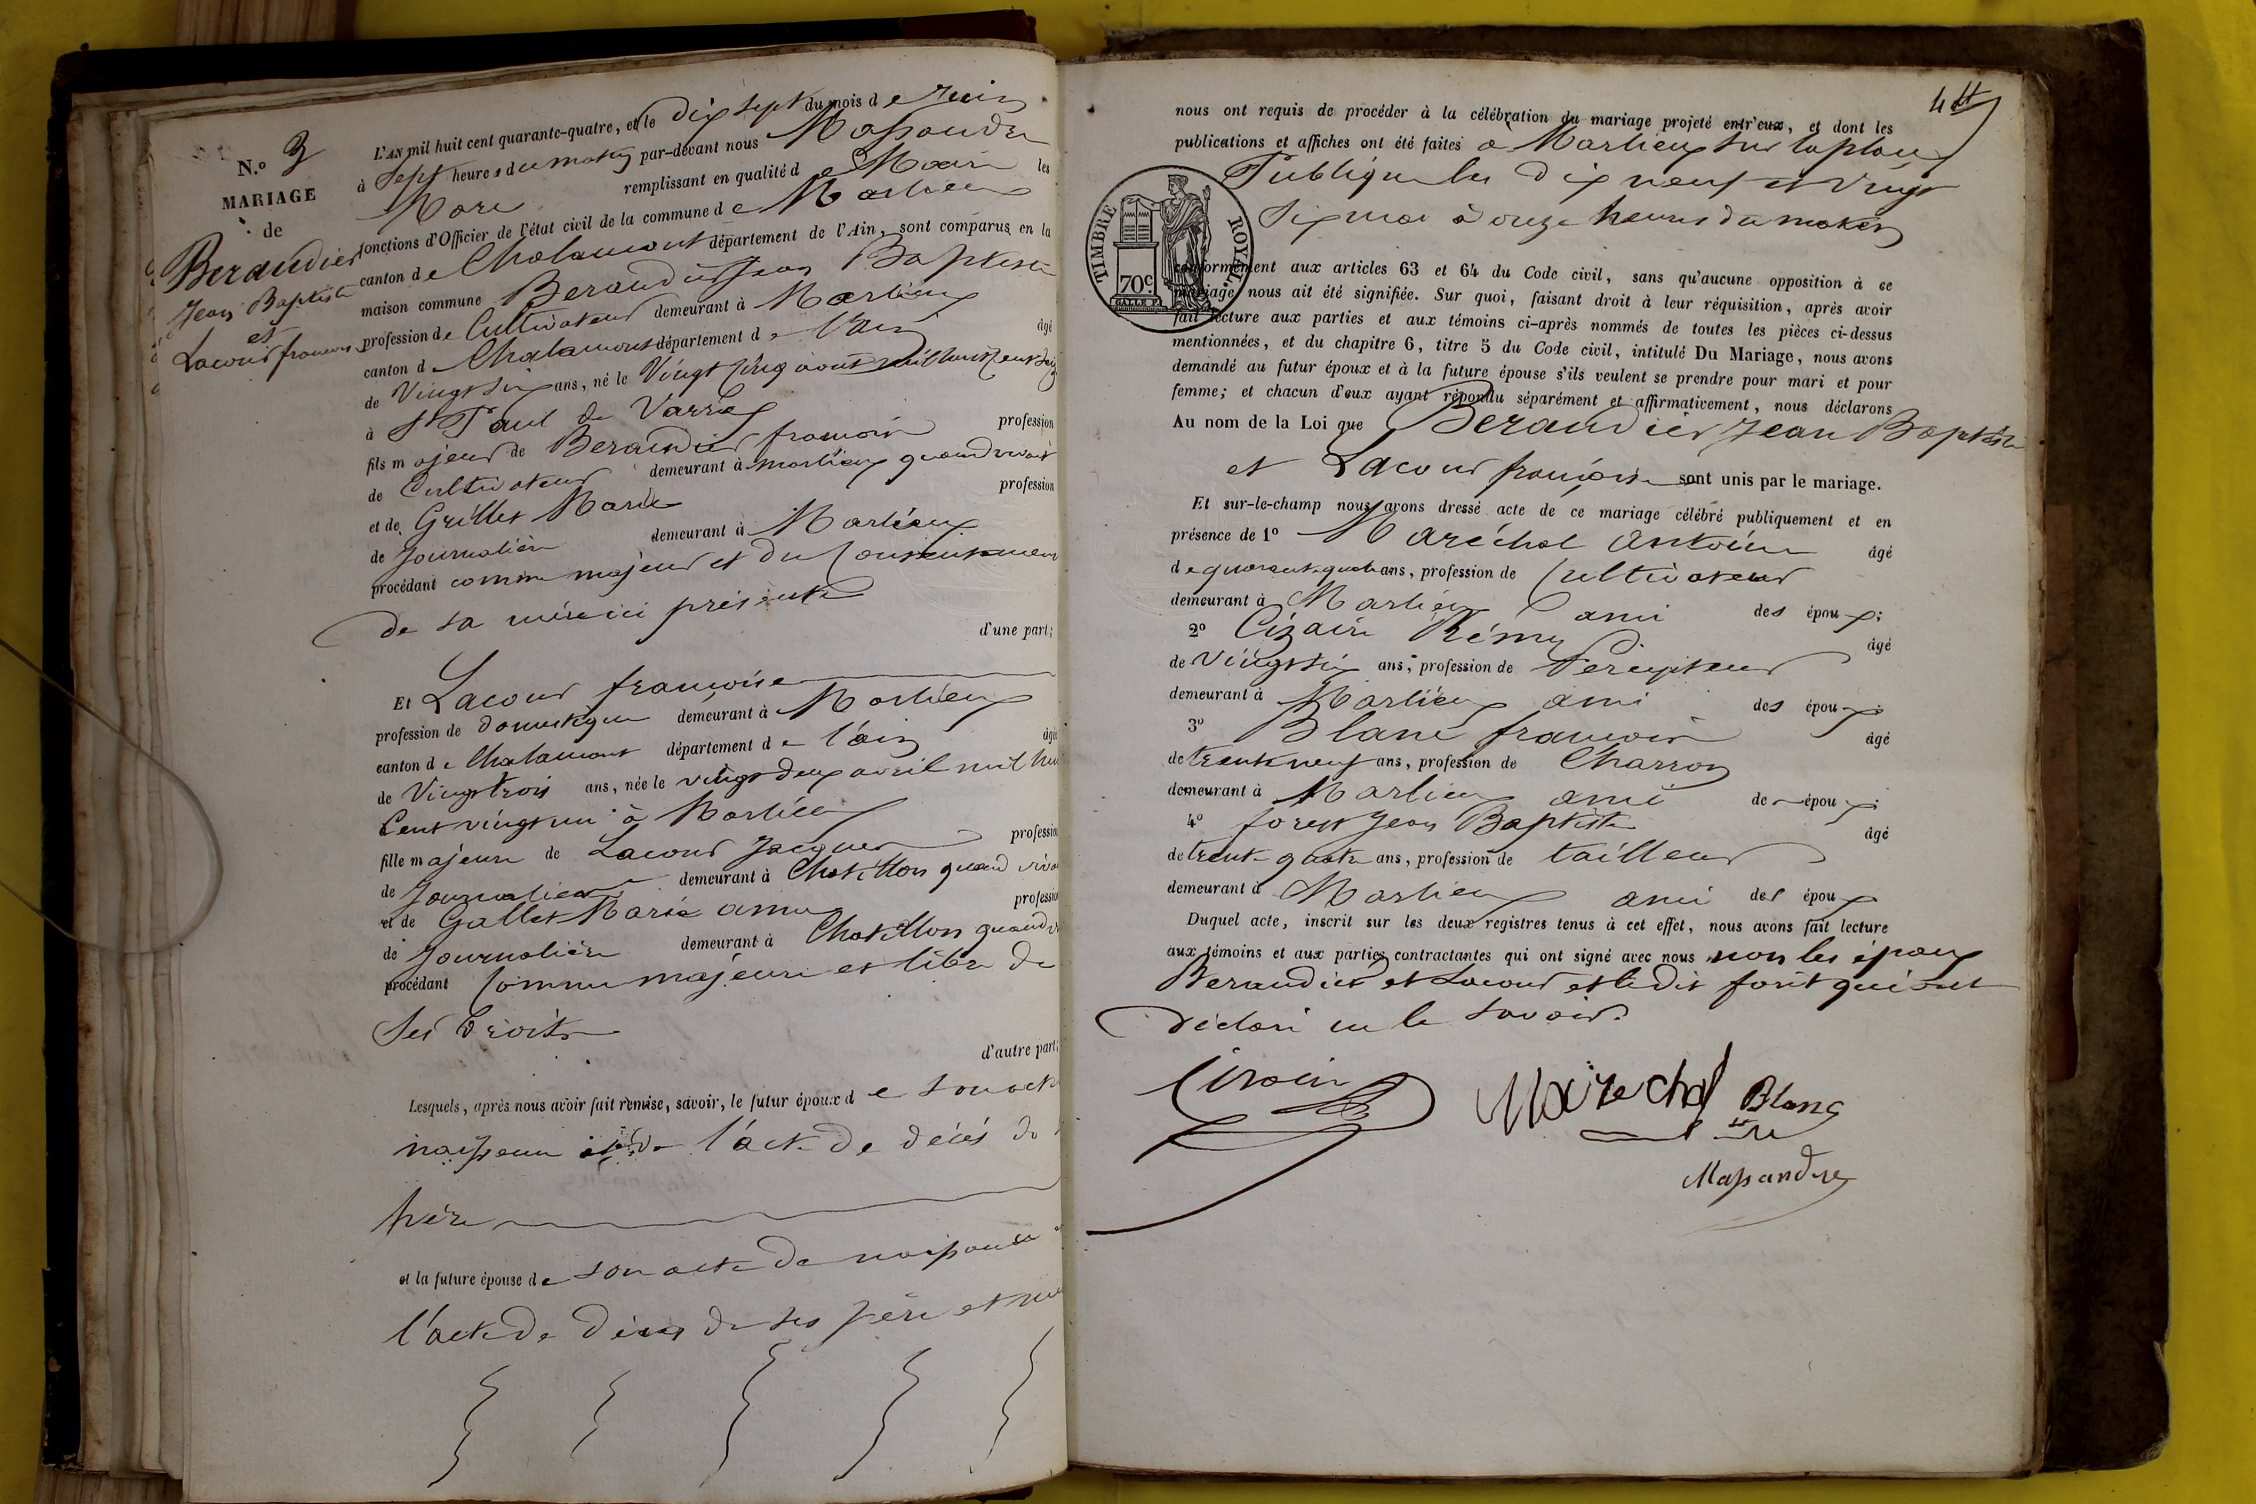 N.o 3
MARIAGE
de
Beraudier
Jean Baptiste
et
Lacour françoise
L'AN mil huit cent quarante-quatre, et le dix sept du mois de Juin
à Sept heures du matin par-devant nous Massandre
Marc remplissant en qualité de Maire les
fonctions d'Officier de l'état civil de la commune de Marlieux
canton de Chalamont département de l'Ain, sont comparus en la
maison commune Beraudier Jean Baptiste
profession de Cultivateur demeurant à Marlieux
canton de Chalamont département de l'ain âgé
de Vingt Six ans, né le Vingt Cinq août mil huit Cent
à St Paul de Varax
fils majeur de Beraudier francois profession
de Cultivateur demeurant à marlieux quand vivait
et de Grillet Marie profession
de Journalière demeurant à Marlieux
procédant comme majeur et du Consentement
de sa mère ici présente
d'une part;
Et Lacour françoise
profession de domestique demeurant à Marlieux
canton de Chalamont département de l'ain âgée
de Vingt trois ans, née le vingt deux avril mil huit
Cent vingt un à Marlieux
fille majeure de Lacour Jacques profession
de Journalier demeurant à Chatillon quand vivait
et de Gallet Marie anne profession
de Journalière demeurant à Chatillon quand
procédant Comme majeure et libre de
Ses Droits
d'autre part;
Lesquels, après nous avoir fait remise, savoir, le futur époux de son acte
naissance de l'acte de décés de
père
et la future épouse de son acte de naissance
l'acte de décés de ses père et
4
nous ont requis de procéder à la célébration du mariage projeté entr'eux, et dont les
publications et affiches ont été faites à Marlieux sur la place
Publique les dix neuf et vingt
Six mai à onze heures du matin
TIMBRE ROYAL.
70c.
conformément aux articles 63 et 64 du Code civil, sans qu'aucune opposition à ce
mariage nous ait été signifiée. Sur quoi, faisant droit à leur réquisition, après avoir
fait lecture aux parties et aux témoins ci-après nommés de toutes les pièces ci-dessus
mentionnées, et du chapitre 6, titre 5 du Code civil, intitulé Du Mariage, nous avons
demandé au futur époux et à la future épouse s'ils veulent se prendre pour mari et pour
femme; et chacun d'eux ayant répondu séparément et affirmativement, nous déclarons
Au nom de la Loi que Beraudier Jean Baptiste
et Lacour françoise sont unis par le mariage.
Et sur-le-champ nous avons dressé acte de ce mariage célébré publiquement et en
présence de 1o Maréchal Antoine âgé
de quarante quatre ans, profession de Cultivateur
demeurant à Marlieux ami des époux;
2o Cizain Rémy âgé
de Vingt Six ans, profession de Percepteur
demeurant à Marlieux ami des époux;
3o Blanc francois âgé
de trente neuf ans, profession de Charron
demeurant à Marlieux ami des époux;
4o forest Jean Baptiste âgé
de trente quatre ans, profession de tailleur
demeurant à Marlieux ami des époux
Duquel acte, inscrit sur les deux registres tenus à cet effet, nous avons fait lecture
aux témoins et aux parties contractantes qui ont signé avec nous non les époux
Beraudier et Lacour et ledit forêt qui ont
déclaré ne le savoir.
Marechal Blanc
Massandre